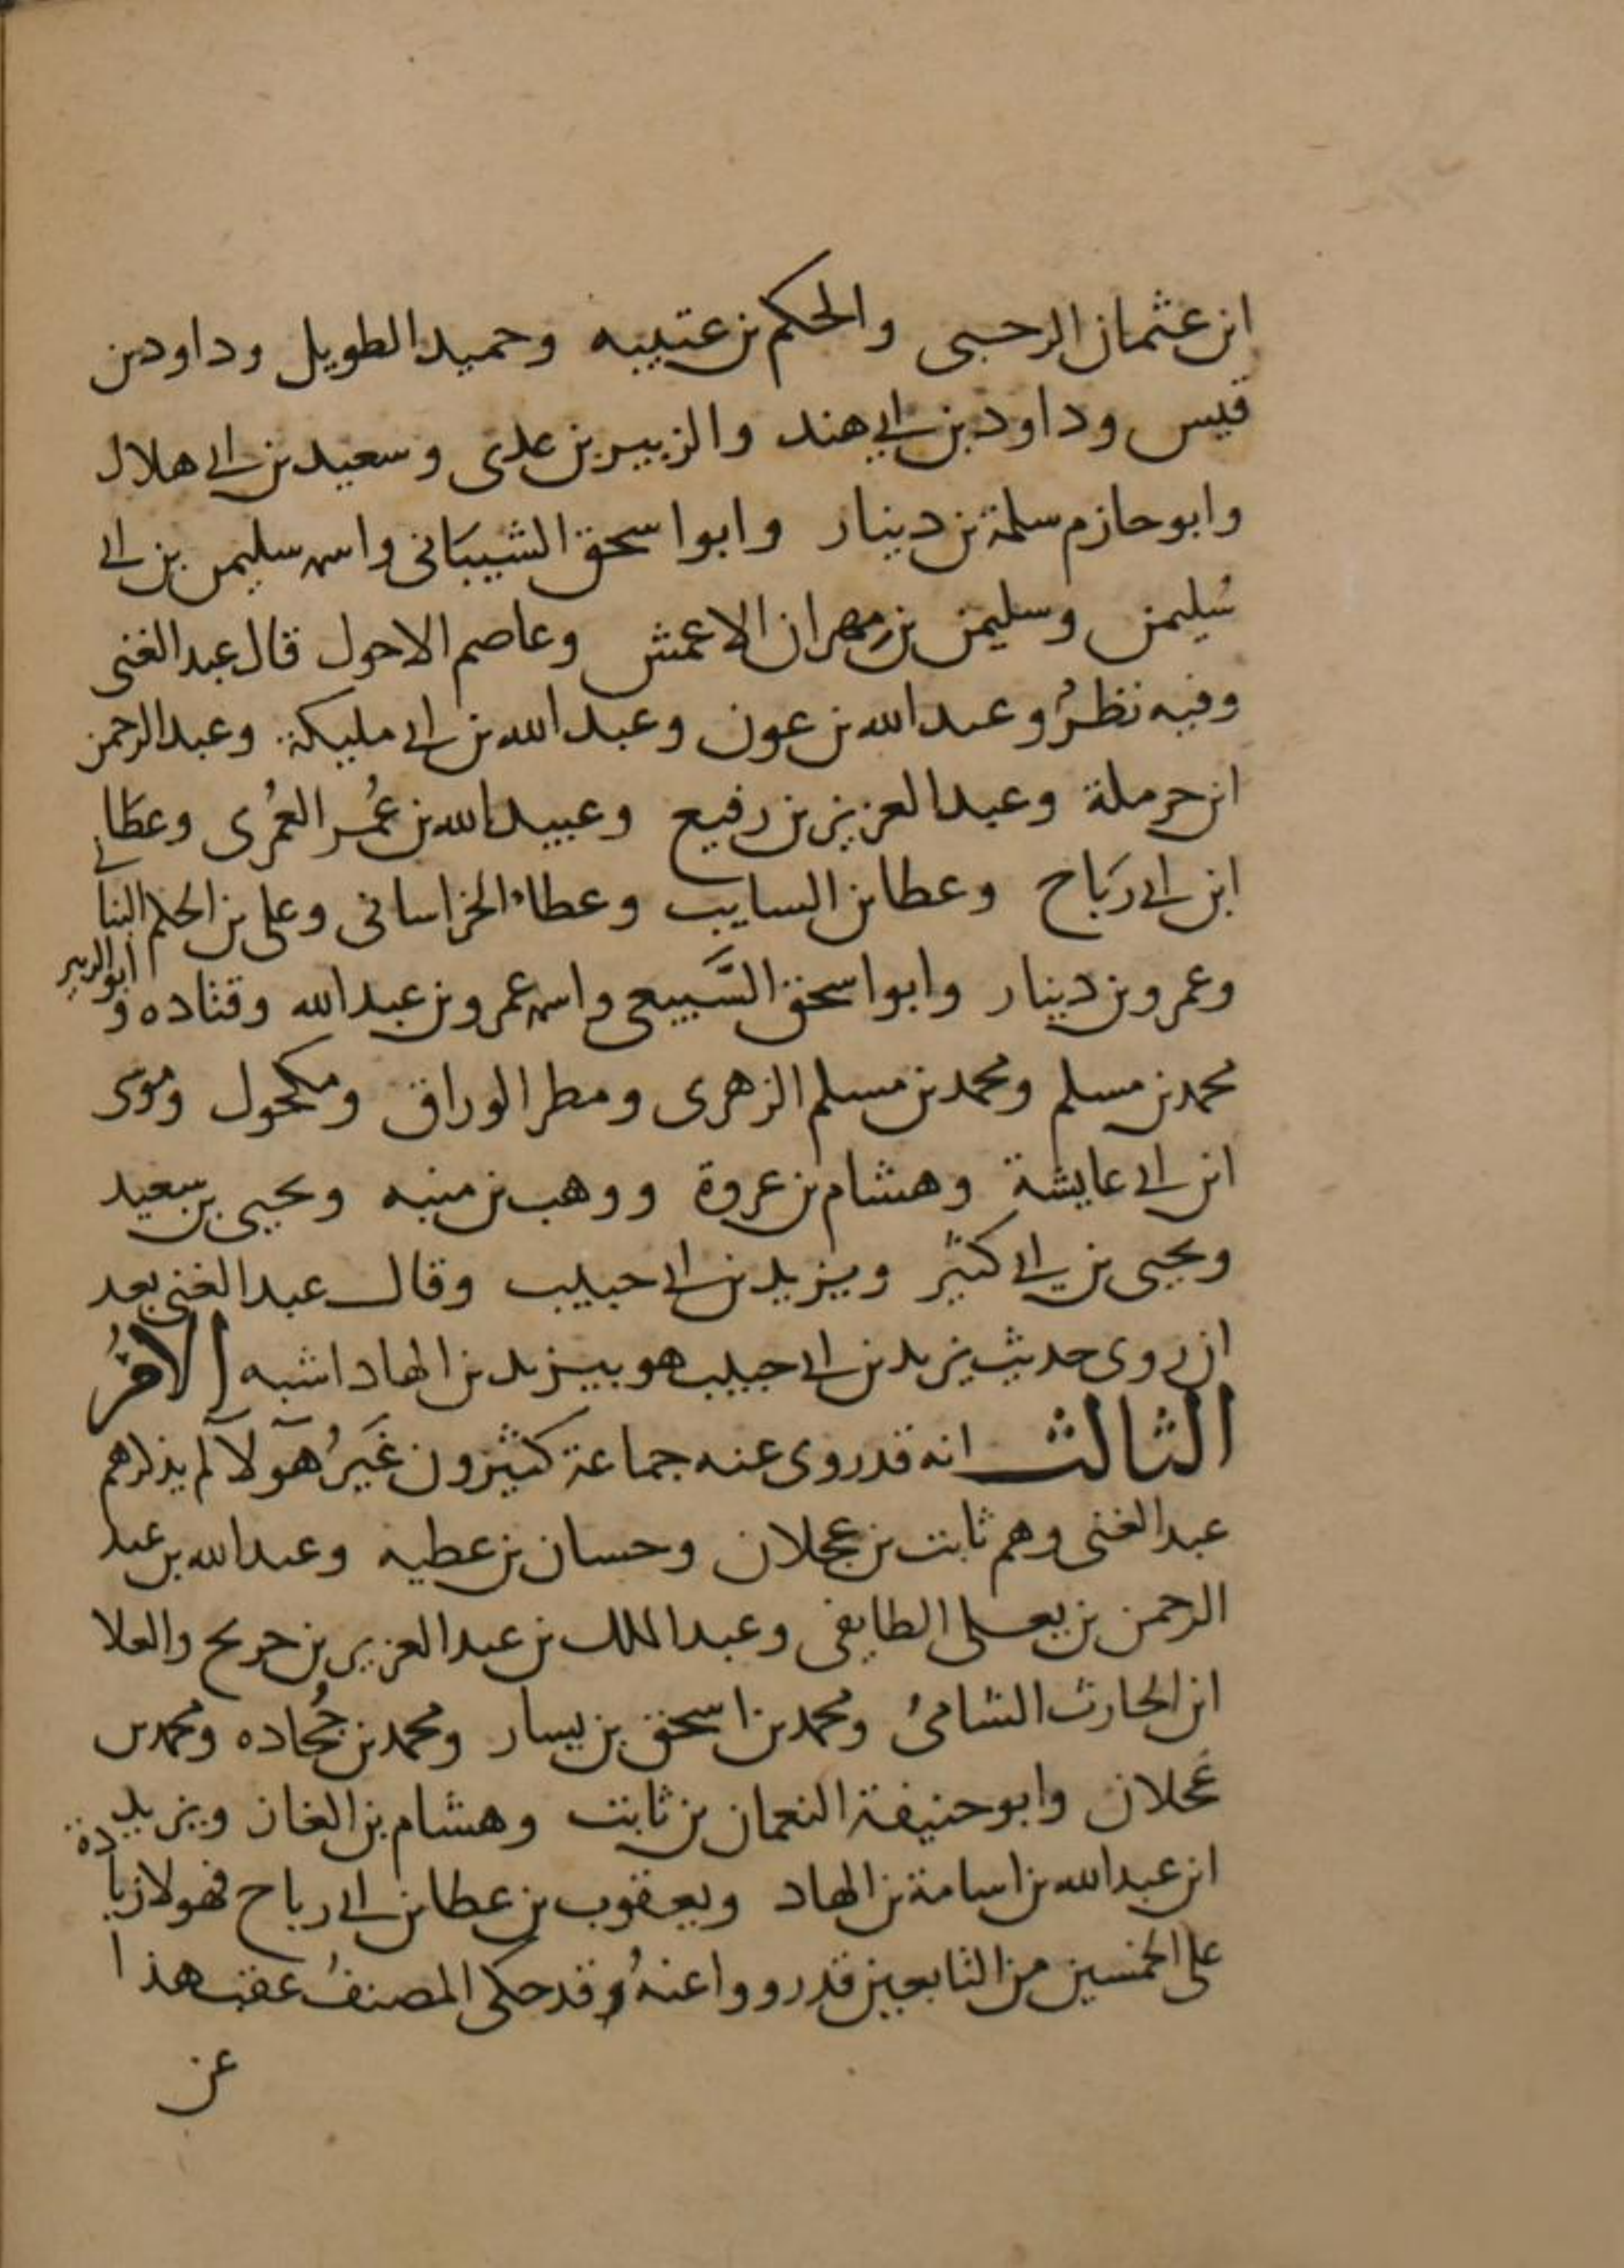 ابن عثمان الرحبى والحكم بن عتيبه وحميد الطويل وداود بن
قيس وداود بن ابي هند والزبير بن عدى وسعيد بن ابى هلال
وابو حازم سلمة بن دينار وابو اسحق الشيبَانى واسمه سليمن بن ابى
سُليمن وسليمن بن مهران الاعمش وعاصم الاحول قال عبد الغنى
وفيه نظرُ وعبد الله بن عون وعبد الله بن ابى مليكة وعبد الرحمن
ابن حرملة وعبد العزيز بن رفيع وعبيد الله بن عُمر العمُرى وعطا
ابن ابى رَبَاح وعطا بن السايب وعطاء الخراسانى وعلى بن الحكم البنانى
وعمرو بن دينار وابو اسحق السَّبيعى واسمه عمرو بن عبد الله وقتاده و ابو الزبير
محمد بن مسلم ومحمد بن مسلم الزهرى ومطر الوراق ومكحول وموسى
ابن ابى عايشة وهشام بن عروة ووهب بن منبه ويحيى بن سعيد
ويحيى بن ابى كثير ويزيد بن ابى حبيب وقال عبد الغنى بعد
ان روى حديث يزيد بن ابى حبيب هو بيزيد بن الهاد اشبه الامرُ
الثالث انه قد روى عنه جماعة كثيرون غَيرُ هؤلآ لم يذكرهم
عبد الغنى وهم ثابت بن عجلان وحسان بن عطيه وعبد الله بن عبد
الرحمن بن يعلى الطايفى وعبد الملك بن عبد العزيز بن جريج والعلا
ابن الحارث الشامىُ ومحمد بن اسحق بن يسار ومحمد بن جُحاده ومحمد بن
عَجلان وابو حنيفة النعمان بن ثابت وهشام بن الغاز ويزيد
ابن عبد الله بن اسامة بن الهاد ويعقوب بن عطا بن ابى رباح فهولا زيادة
على الخمسين من التابعين قد رووا عنهُ وقد حكى المصنفُ عقب هذا
عن